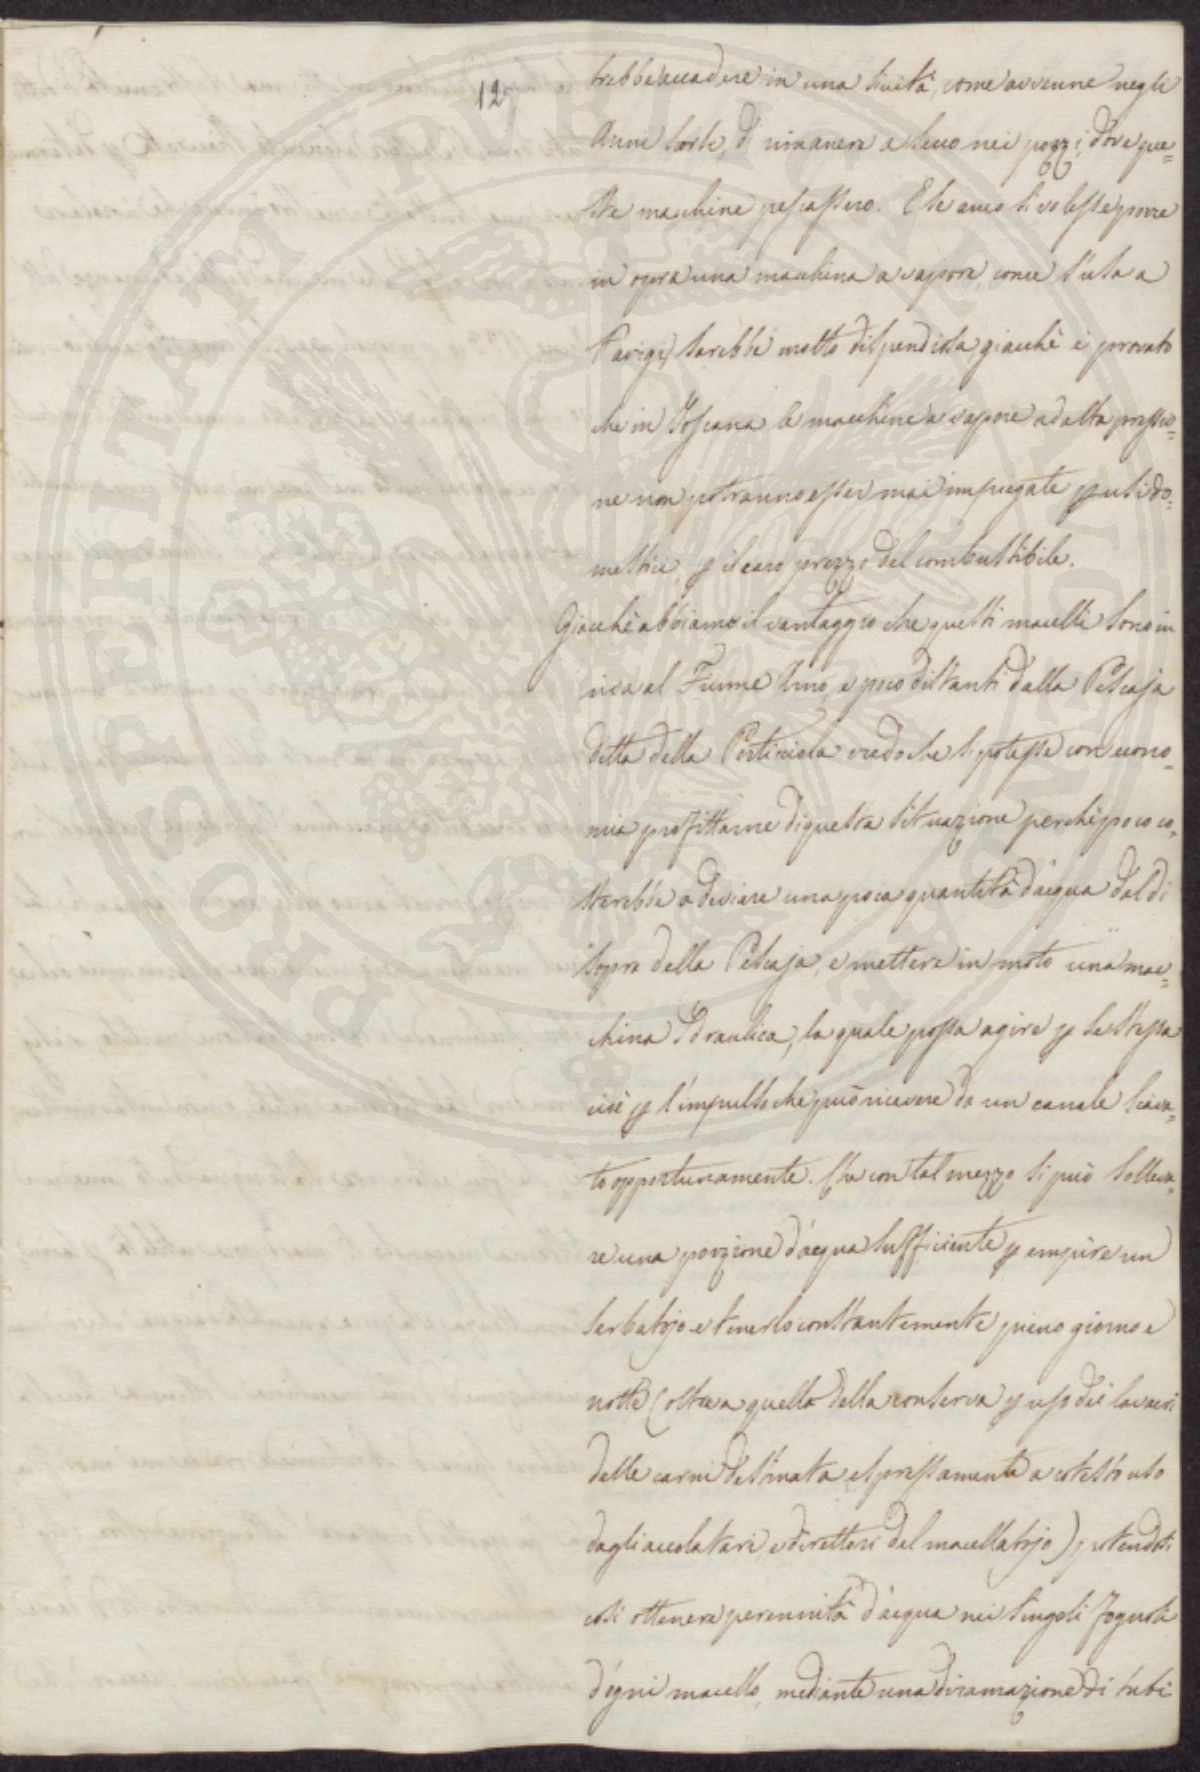 12
trebbe accadere in una siccità, come avvenne negli
Anni scorsi, di rimanere a secco nei pozzi, dove que=
ste macchine pescassero. E se anco si volesse porre
in opra una macchina a vapore, come s'usa a
Parigi, sarebbe molto dispendiosa, giacchè è provato
che in Toscana le macchine a vapore ad alta pressio=
ne non potranno esser mai impiegate p usi do=
mestici, p il caro prezzo del combustibile.
Giacchè abbiamo il vantaggio che questi macelli sono in
riva al Fiume Arno, e poco distanti dalla Pescaja
detta della Porticciola credo che si potesse con econo=
mia profittarne di questa situazione perchè poco co=
sterebbe a deviare una poca quantità d'acqua dal di
sopra della Pescaja, e mettere in moto una mac=
china Idraulica, la quale possa agire p se stessa
cioè p l'impulso che può ricevere da un canale scava=
to opportunamente. Che con tal mezzo si può solleva=
re una porzione d'acqua sufficiente p empire un
serbatojo e tenerlo costantemente pieno giorno e
notte (oltre a quello della conserva p uso dei lavacri
delle carni destinata espressamente a cotesto uso
dagli accollatari, e direttori del macellatojo) potendosi
così ottenere perennità d'acqua nei singoli fognoli
d'ogni macello, mediante una diramazione di tubi
PROSPERITATI PVBLICAE